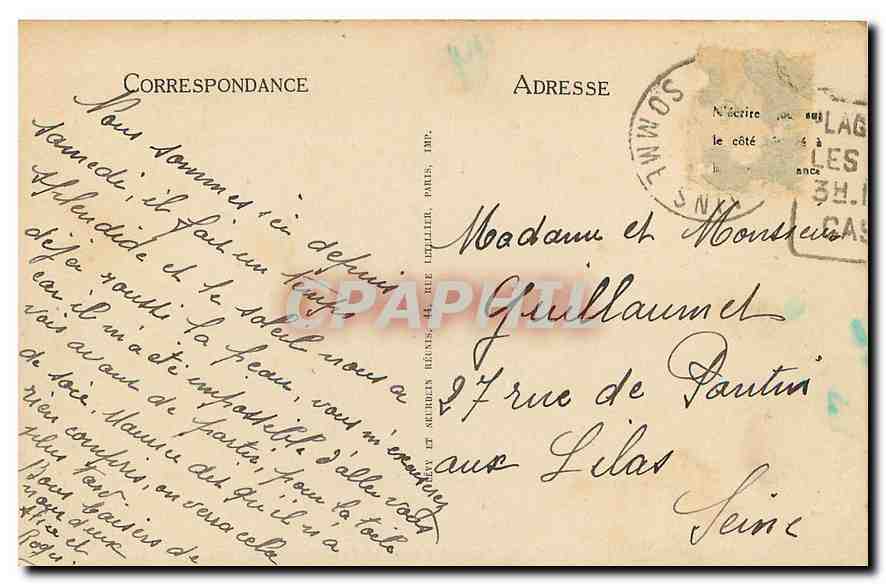 CORRESPONDANCE
Nous sommes ici depuis
samedi, il fait un temps
splendide et le soleil nous a
déjà roussi la peau, vous m'excuserez
car il m'a été impossible d'aller vous
voir avant de partir, pour la toile
de soie, Maurice dit qu'il n'a
rien compris, on verra cela
plus tard
Bons baisers de
nous deux
et
Roger
LÉVY ET NEURDEIN RÉUNIS, 44, RUE LETELLIER, PARIS, IMP.
ADRESSE
N'écrire que sur
le côté à
SOMME
PLAG
LES
3H.
CAS
Madame et Monsieur
Guillaumet
27 rue de Pantin
aux Lilas
Seine
CPAPHIL